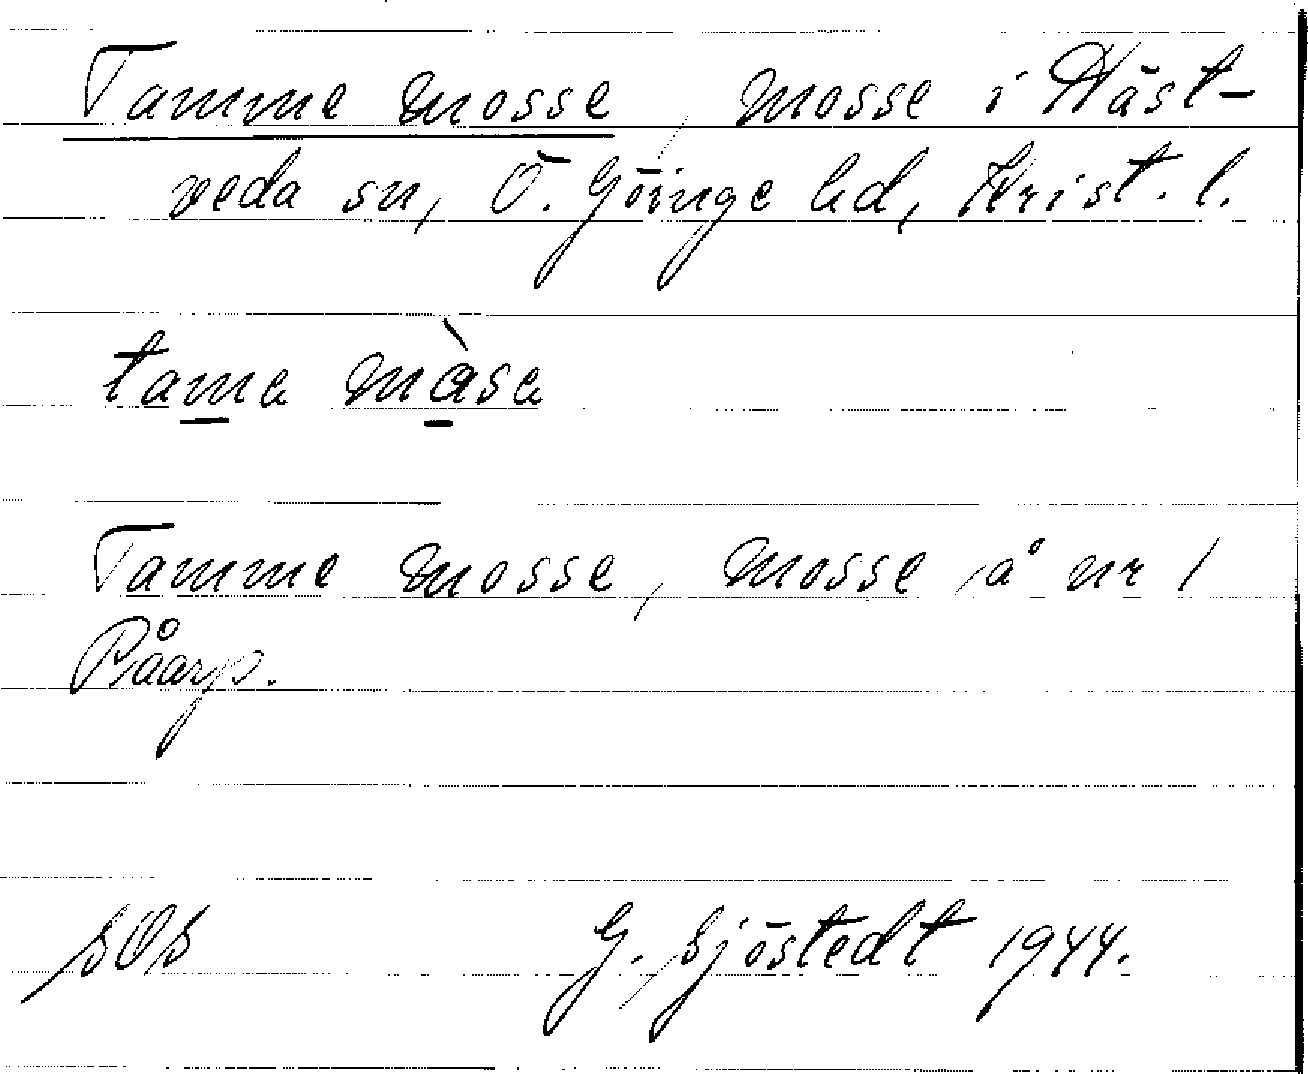 Tamme mosse, mosse i Häst-
veda sn, Ö. Göinge hd, Krist. l.
tama màsa
Tamme mosse, mosse å nr 1
Påarp.
SOS G. Sjöstedt 1944.